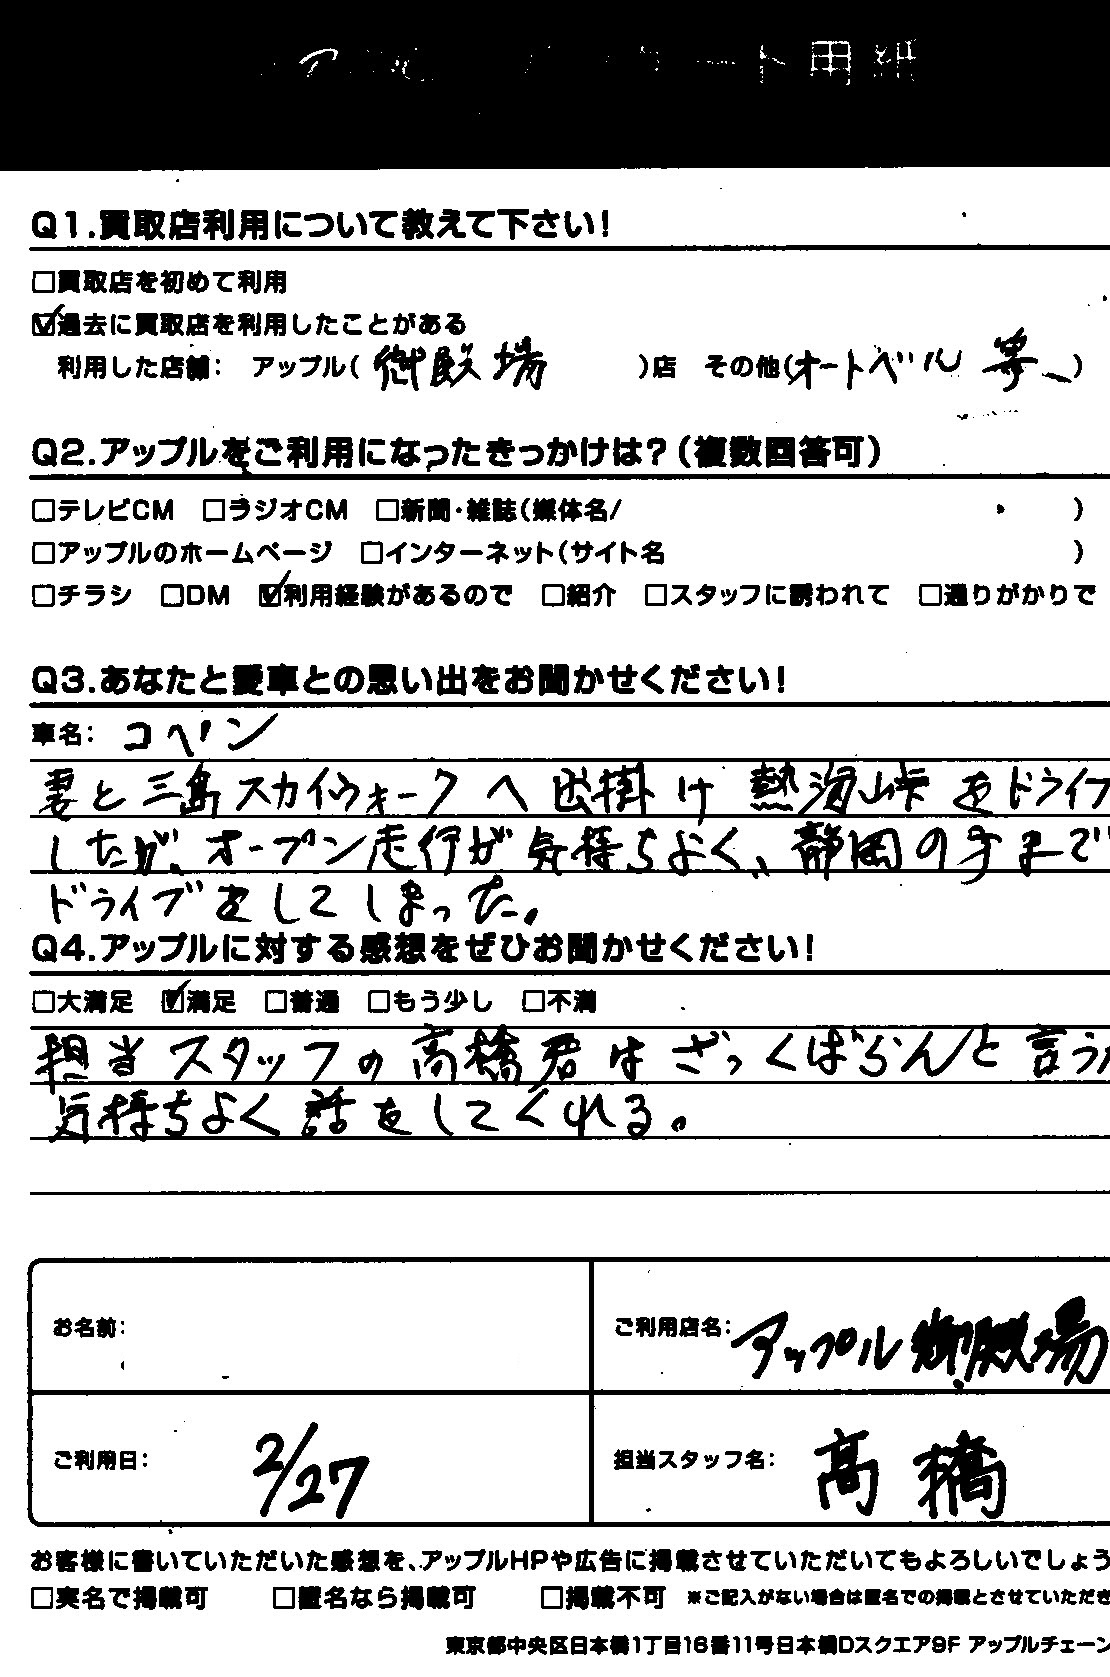 ート用紙
Q1.買取店利用について教えて下さい!
□買取店を初めて利用
☑過去に買取店を利用したことがある
利用した店舗: アップル( 御殿場 )店 その他(オートベル 等 )
Q2.アップルをご利用になったきっかけは?(複数回答可)
□テレビCM □ラジオCM □新聞・雑誌(媒体名/ )
□アップルのホームページ □インターネット(サイト名 )
□チラシ □DM ☑利用経験があるので □紹介 □スタッフに誘われて □通りがかりで
Q3.あなたと愛車との思い出をお聞かせください!
車名: コペン
妻と三島スカイウォークへ出掛け熱海峠をドライブ
したが、オープン走行が気持ちよく、静岡の方まで
ドライブをしてしまった。
Q4.アップルに対する感想をぜひお聞かせください!
□大満足 ☑満足 □普通 □もう少し □不満
担当スタッフの高橋君はざっくばらんと言うか
気持ちよく話をしてくれる。
お名前:
ご利用店名: アップル御殿場
ご利用日: 2/27
担当スタッフ名: 高橋
お客様に書いていただいた感想を、アップルHPや広告に掲載させていただいてもよろしいでしょう
□実名で掲載可 □匿名なら掲載可 □掲載不可 ※ご記入がない場合は匿名での掲載とさせていただき
東京都中央区日本橋1丁目16番11号日本橋Dスクエア9F アップルチェーン